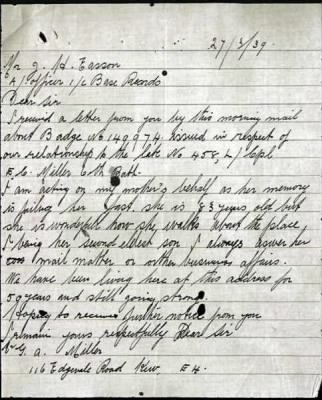 27/3/39.
Mr J. H. Easson
A/ Officer i/c Base Records
Dear Sir
I receved a letter from you by this morning mail
about Badge No 149974. Issued in respect of
our relationship to the late No 458, L/Cpl
E. C. Miller 6th Batt.
I am acting on my mother's behalf as her memory
is failing her fast. she is 83 years old but
she is wonderful how she walks about the place
I being her second eldest son I always aswer her
mail matter or other business affairs.
We have been living here at this address for
59 years and still going strong.
Hoping to receive further notice from you
I remain yours respectfully Dear Sir
G. A. Miller
116 Edgevale Road Kew. E 4.